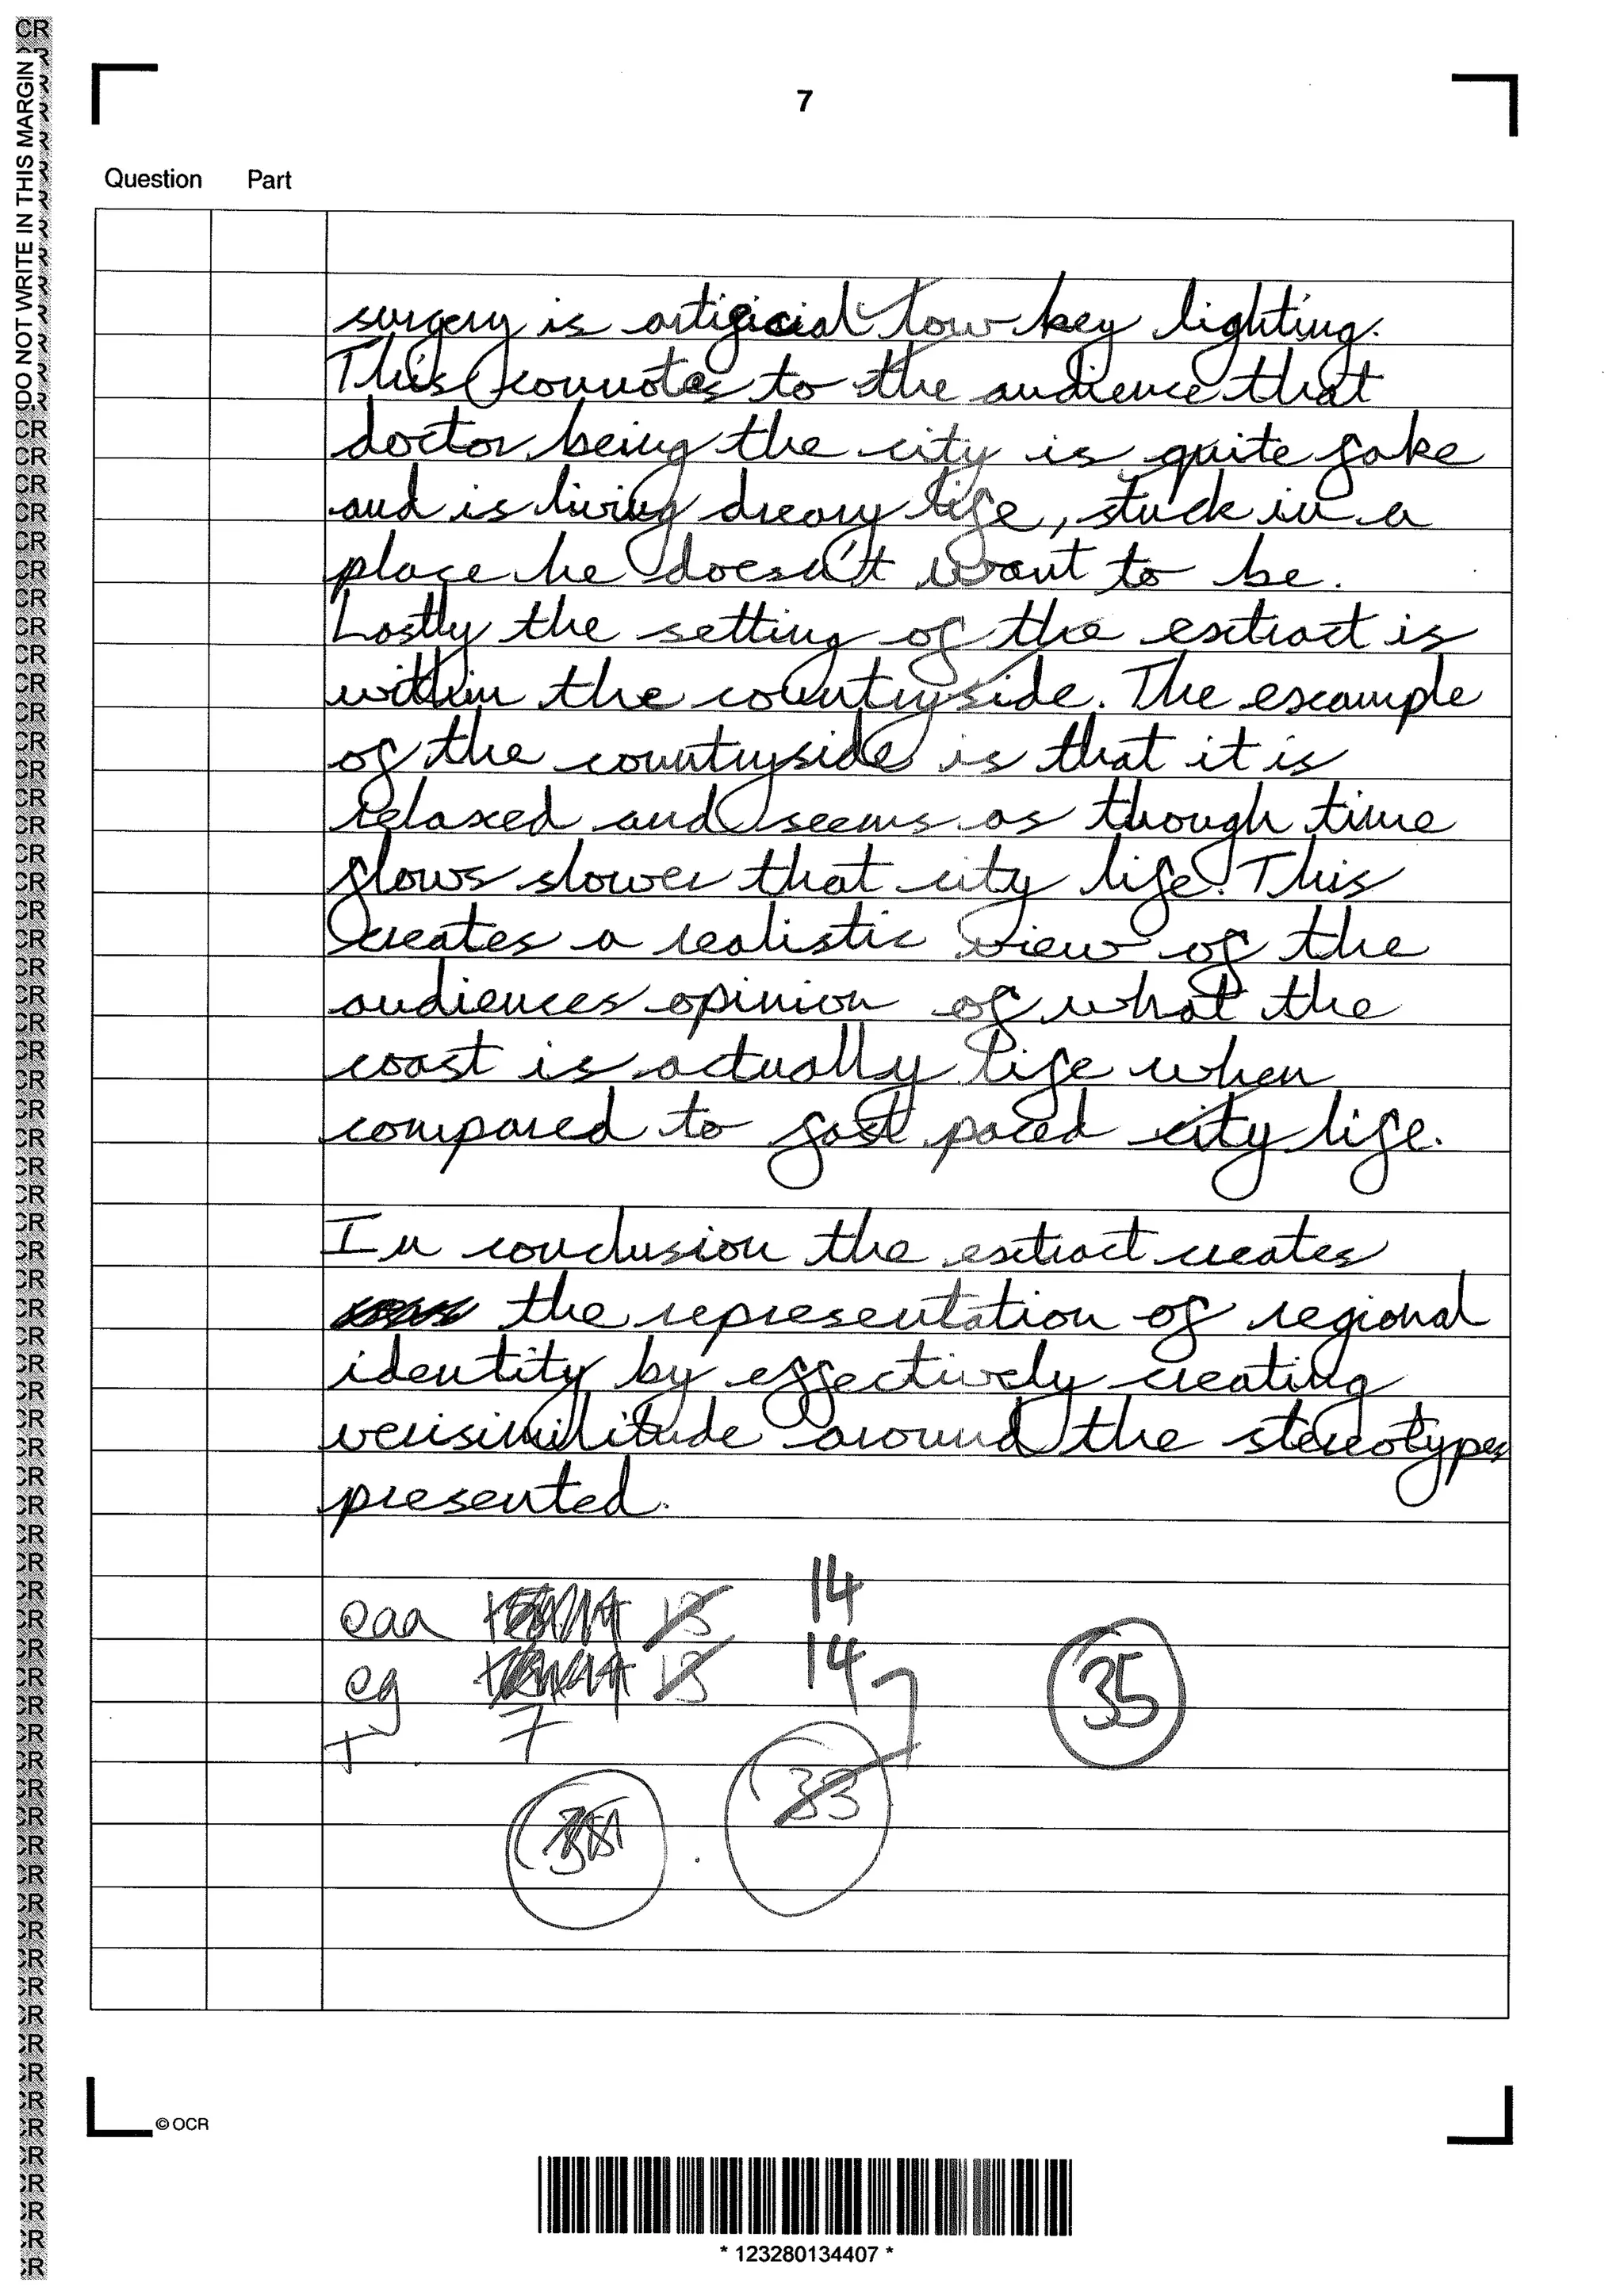 7
Question Part
surgery is artificial low key lighting.
This connotes to the audience that
doctor being the city is quite fake
and is living dreary life, stuck in a
place he doesn't want to be.
Lastly the setting of the extract is
within the countryside. The example
of the countryside is that it is
relaxed and seems as though time
flows slower that city life. This
creates a realistic view of the
audiences opinion of what the
coast is actually life when
compared to fast paced city life.
In conclusion the extract creates
the representation of regional
identity by effectively creating
verisimilitude around the stereotypes
presented.
eaa 13 14
eg 13 14
T 7
35
33
© OCR
* 123280134407 *
DO NOT WRITE IN THIS MARGIN